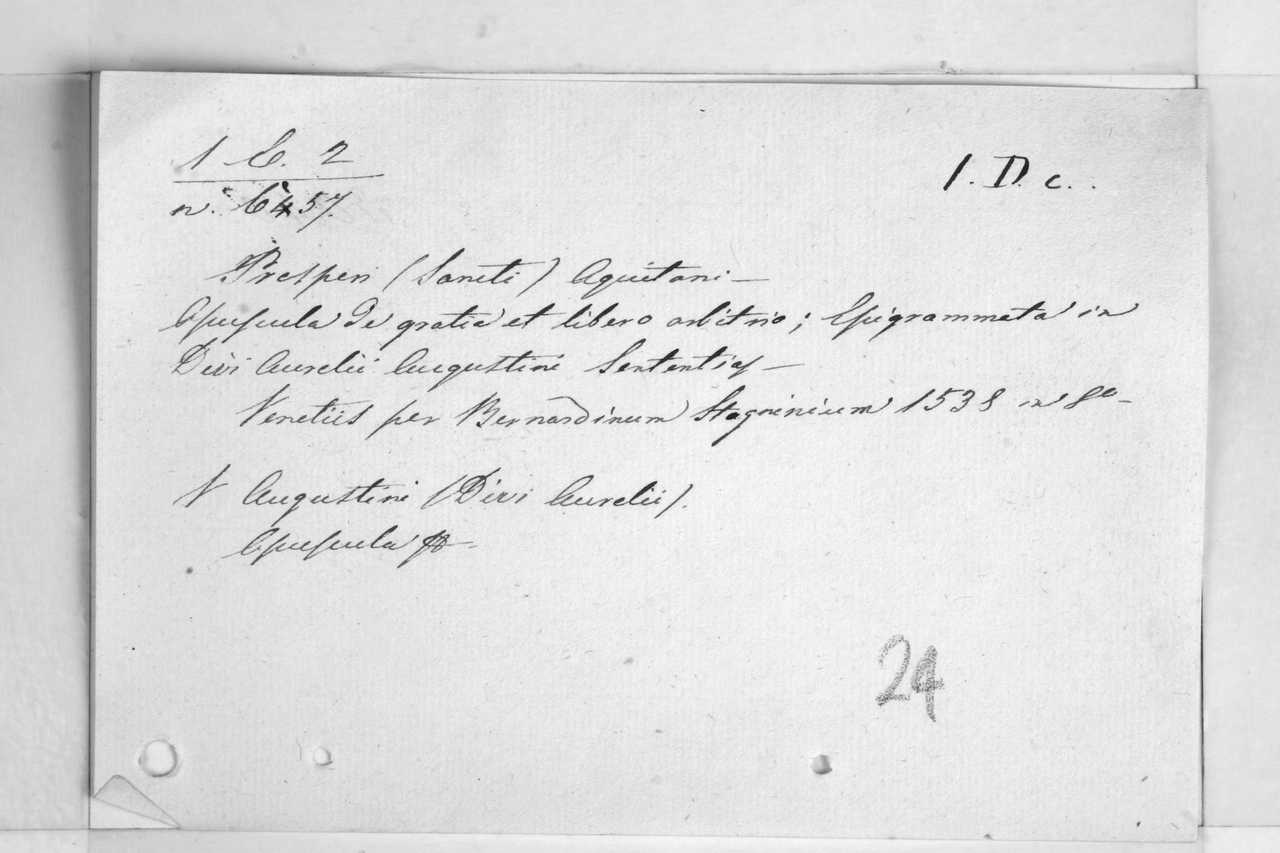 1 E. 2
1. D. c..
n.° 6457.
Prosperi (Sancti) Aquitani —
Opuscula de gratia et libero arbitrio; Epigrammata in
Divi Aurelii Augustini Sententias —
Venetiis per Bernardinum Stagninium 1538 in 8° —
V Augustini (Divi Aurelii).
Opuscula
24